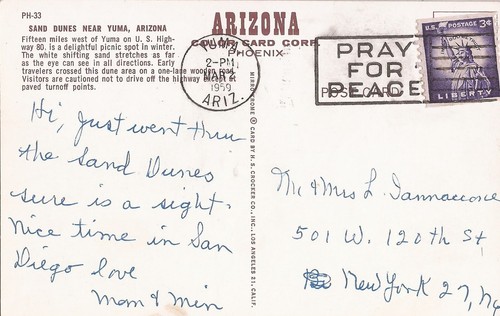 PH-33
SAND DUNES NEAR YUMA, ARIZONA
Fifteen miles west of Yuma on U. S. High-
way 80. is a delightful picnic spot in winter.
The white shifting sand stretches as far
as the eye can see in all directions. Early
travelers crossed this dune area on a one-lane wooden road.
Visitors are cautioned not to drive off the highway except at
paved turnoff points.
Hi, Just went thru
the Sand Dunes
sure is a sight.
Nice time in San
Diego love
Mom & Min
ARIZONA
COLOR CARD CORP.
PHOENIX
YUMA
2-PM
MAR
1959
ARIZ.
PRAY
FOR
PEACE
POST CARD
U.S. POSTAGE 3¢
LIBERTY
MIRRO-KROME ® CARD BY H. S. CROCKER CO., INC., LOS ANGELES 21, CALIF.
Mr & Mrs L. Iannaccone
501 W. 120th St,
New York 27, Ny